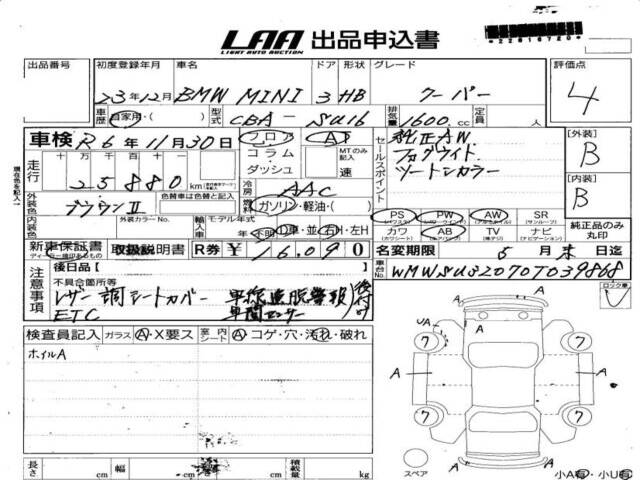 LAA 出品申込書
LIGHT AUTO AUCTION
*22816720*
出品番号 初度登録年月 車名 ドア 形状 グレード 評価点
23年12月 BMW MINI 3 HB クーパー 4
車歴 自家用・( ) 型式 CBA-SU16 排気量 1600 cc 定員 人
車検 R6年11月30日 フロア A
コラム・ダッシュ MTのみ記入 速
セールスポイント
純正AW
フォグライト
ツートンカラー
[外装] B
[内装] B
走行 十 万 千 百 十
25880 km
冷房 AAC
燃料 ガソリン・軽油・( )
外装色 ブラウンII 色替車は色替と記入
内装色 外装カラーNo. 輸入車 モデル年式 年 不明 D車・並 右H・左H
PS PW AW SR
(パワステ) (パワーウインド) (アルミホイル) (サンルーフ)
カワ AB TV ナビ
(カワシート) (エアバッグ) (地デジ) (ナビゲーション)
純正品のみ丸印
新車保証書 取扱説明書 R券 ¥ 16,090
名変期限 5月末日迄
車台No. WMWSU32070T039868
現在色を記入
注意事項
後日品( )
不具合箇所等
レザー調シートカバー 車線逸脱警報 後付け
ETC 車間センサー
ロック車
検査員記入 ガラス A・X要ス 室内 シート A・コゲ・穴・汚れ・破れ
ホイルA
UA A
7 7
A A A
7 7
A
スペア
小A有・小U有
長さ cm 幅 cm 高さ cm 積載量 kg